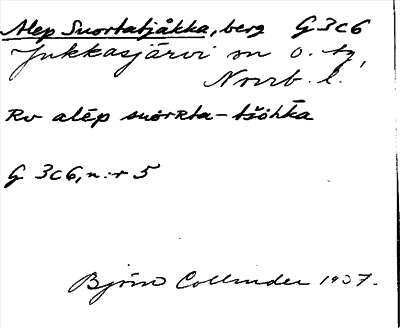 Alep Suortatjåkka, berg G 3c6
Jukkasjärvi sn o. tg,
Norrb. l.
Rv alēp suorRta-tšohka
G 3c6, n:r 5
Björn Collinder 1937.